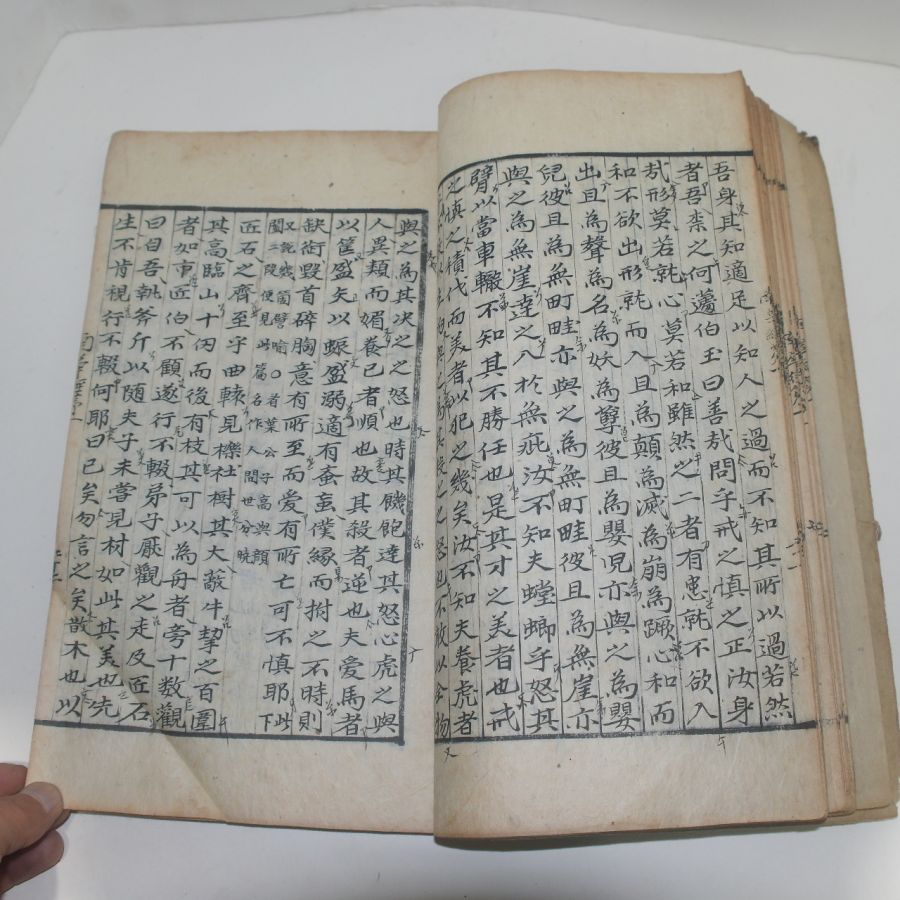 吾身其知適足以知人之過而不知其所以過若然
者吾柰之何蘧伯玉曰善㢤問乎戒之慎之正汝身
㢤形莫若就心莫若和雖然之二者有患就不欲入
和不欲出形就而入且為顛為滅為崩為蹶心和而
出且為聲為名為妖為孽彼且為嬰兒亦與之為嬰
兒彼且為無町畦亦與之為無町畦彼且為無崖亦
與之為無崖達之入於無疵汝不知夫螳螂乎怒其
臂以當車轍不知其不勝任也是其才之美者也戒
之慎之積伐而美者以犯之幾矣汝不知夫養虎者
之怒也不敢以全物
與之為其决之之怒也時其饑飽達其怒心虎之與
人異類而媚養己者順也故其殺者逆也夫愛馬者
以筐盛矢以蜄盛溺適有蚉䖟僕緣而拊之不時則
缺銜毀首碎胸意有所至而愛有所亡可不慎耶此下
又說幾箇譬喻○看葉公子高與顏
闔二段便見此篇名作人間世分曉
匠石之齊至乎曲轅見櫟社樹其大蔽牛挈之百圍
其高臨山十仞而後有枝其可以為舟者旁十數觀
者如市匠伯不顧遂行不輟弟子厭觀之走及匠石
曰自吾執斧斤以隨夫子未嘗見材如此其美也先
生不肯視行不輟何耶曰已矣勿言之矣散木也以